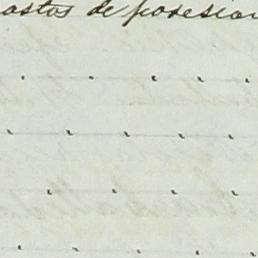 astos de posesion